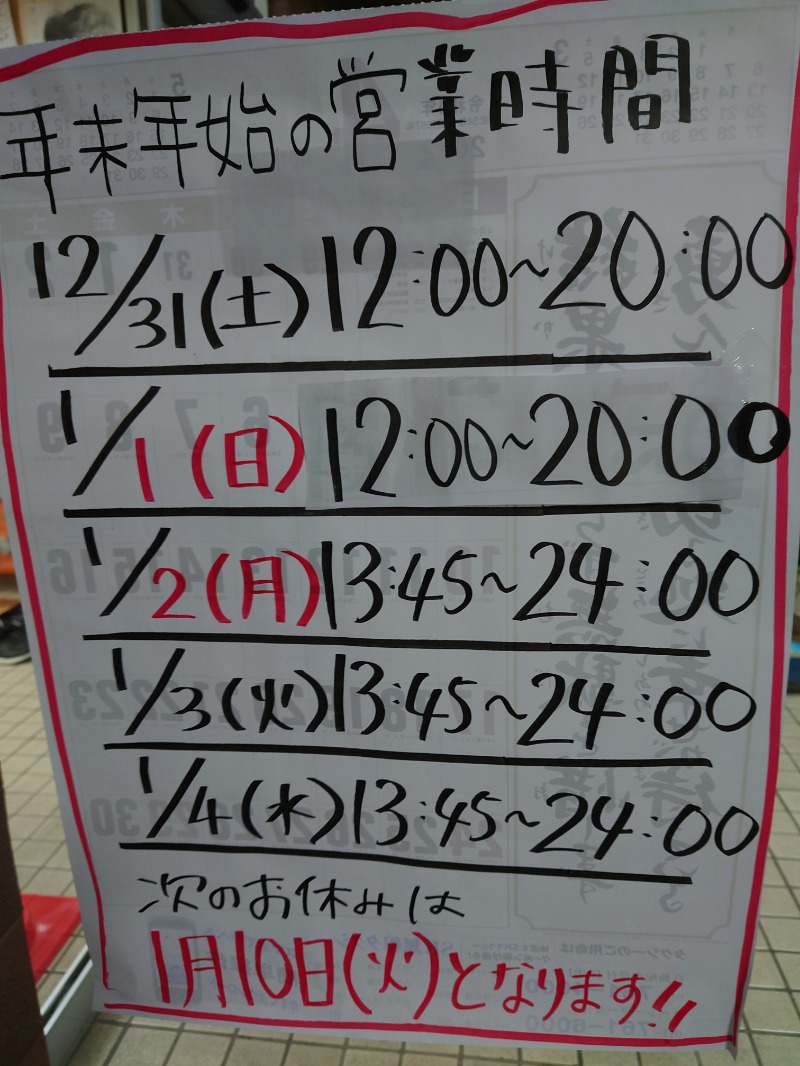 年末年始の営業時間
12/31(土)12:00~20:00
1/1(日)12:00~20:00
1/2(月)13:45~24:00
1/3(火)13:45~24:00
1/4(水)13:45~24:00
次のお休みは
1月10日(火)となります!!